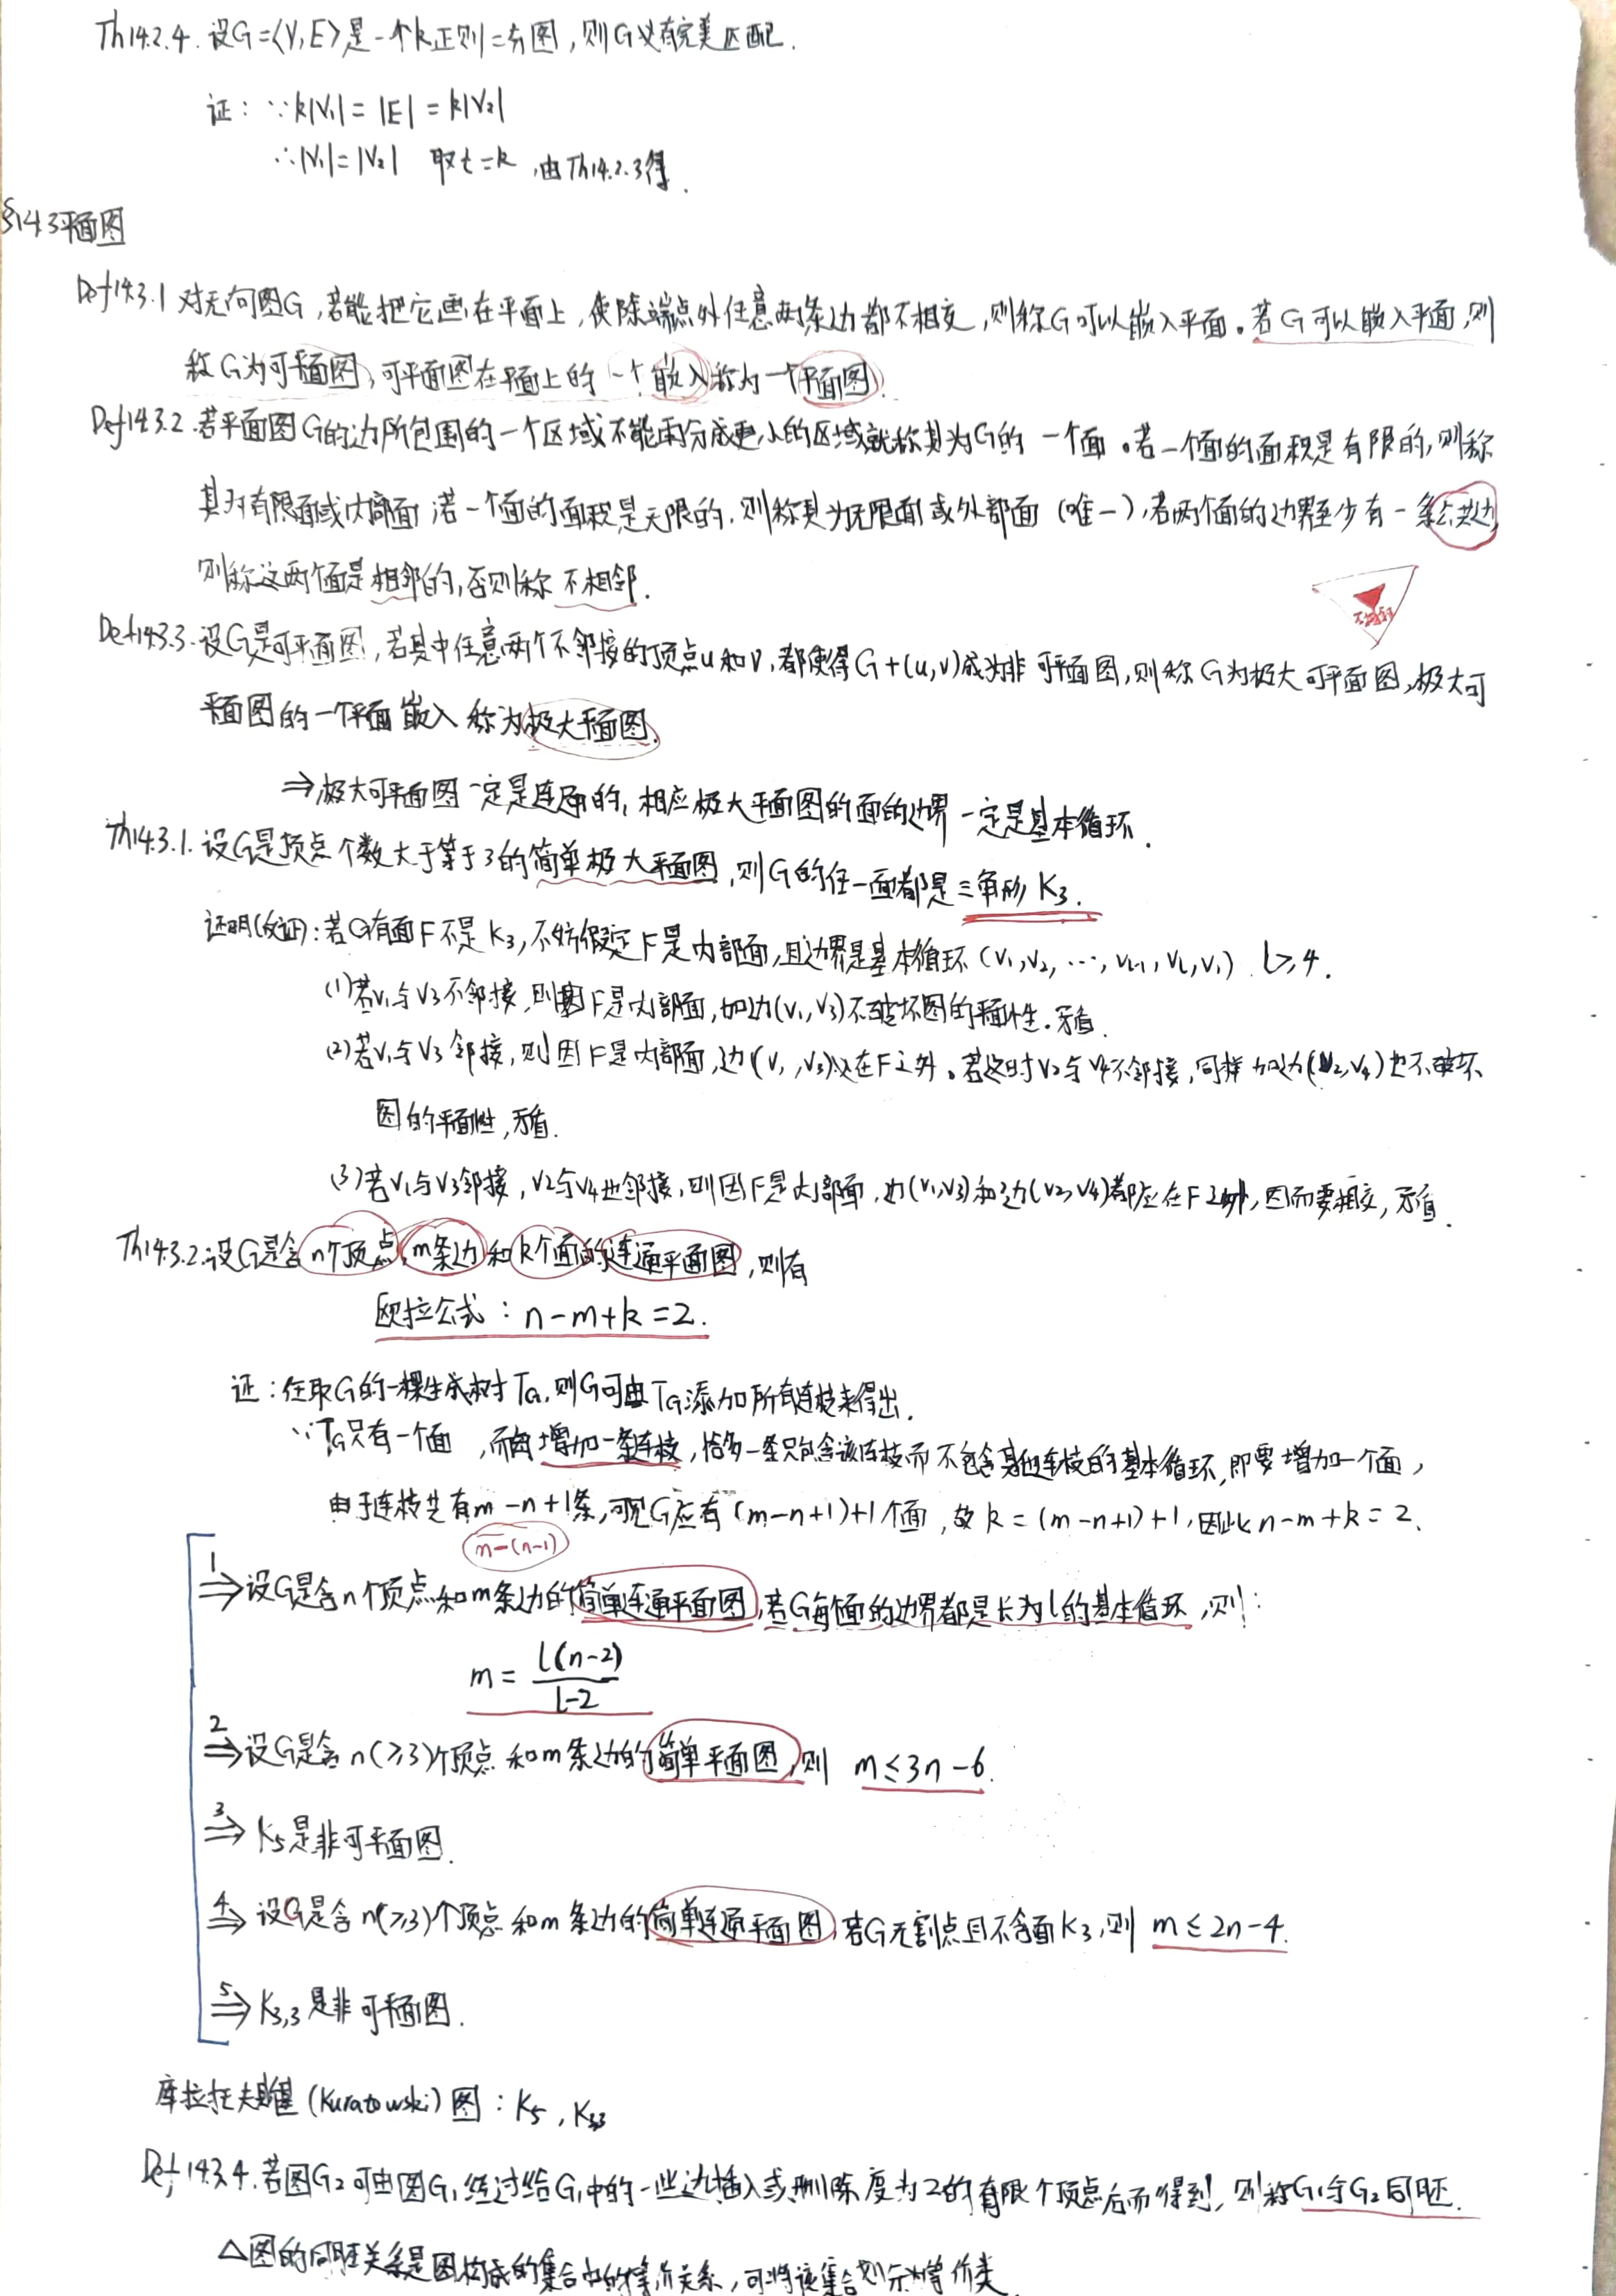 Th14.2.4. 设G=<V,E>是一个k正则二分图,则G必有完美匹配.
证: ∵k|V₁|=|E|=k|V₂|
∴|V₁|=|V₂| 取t=k,由Th14.2.3得.
§14.3平面图
Def14.3.1 对无向图G,若能把它画在平面上,使除端点外任意两条边都不相交,则称G可以嵌入平面。若G可以嵌入平面,则
称G为可平面图,可平面图在平面上的一个嵌入称为一个平面图.
Def14.3.2.若平面图G的边所包围的一个区域不能再分成更小的区域就称其为G的一个面。若一个面的面积是有限的,则称
其为有限面或内部面;若一个面的面积是无限的,则称其为无限面或外部面(唯一),若两个面的边界至少有一条公共边,
则称这两个面是相邻的,否则称不相邻.
不相邻
Def14.3.3.设G是可平面图,若其中任意两个不邻接的顶点u和v,都使得G+(u,v)成为非可平面图,则称G为极大可平面图,极大可
平面图的一个平面嵌入称为极大平面图.
⇒极大可平面图一定是连通的,相应极大平面图的面的边界一定是基本循环.
Th14.3.1.设G是顶点个数大于等于3的简单极大平面图,则G的任一面都是三角形K₃.
证明(反证):若G有面F不是K₃,不妨假定F是内部面,且边界是基本循环(v₁,v₂,…,vₗ₋₁,vₗ,v₁) l≥4.
(1)若v₁与v₃不邻接,则因F是内部面,加边(v₁,v₃)不破坏图的平面性.矛盾.
(2)若v₁与v₃邻接,则因F是内部面,边(v₁,v₃)必在F之外。若这时v₂与v₄不邻接,同样加边(v₂,v₄)也不破坏
图的平面性,矛盾.
(3)若v₁与v₃邻接,v₂与v₄也邻接,则因F是内部面,边(v₁,v₃)和边(v₂,v₄)都应在F之外,因而要相交,矛盾.
Th14.3.2.设G是含n个顶点,m条边和k个面的连通平面图,则有
欧拉公式:n-m+k=2.
证:任取G的一棵生成树T_G,则G可由T_G添加所有连枝来得出.
∵T_G只有一个面,而每增加一条连枝,恰多一条只包含该连枝而不包含其他连枝的基本循环,即要增加一个面,
由于连枝共有m-n+1条,可见G应有(m-n+1)+1个面,故k=(m-n+1)+1,因此n-m+k=2.
m-(n-1)
1⇒设G是含n个顶点和m条边的简单连通平面图,若G每个面的边界都是长为l的基本循环,则:
m=l(n-2)/l-2
2⇒设G是含n(≥3)个顶点和m条边的简单平面图,则 m≤3n-6.
3⇒K₅是非可平面图.
4⇒设G是含n(≥3)个顶点和m条边的简单连通平面图,若G无割点且不含面K₃,则m≤2n-4.
5⇒K₃,₃是非可平面图.
库拉托夫斯基(Kuratowski)图:K₅,K₃,₃
Def14.3.4.若图G₂可由图G₁经过给G₁中的一些边插入或删除度为2的有限个顶点后而得到,则称G₁与G₂同胚.
△图的同胚关系是图构成的集合中的等价关系,可将该集合划分为等价类